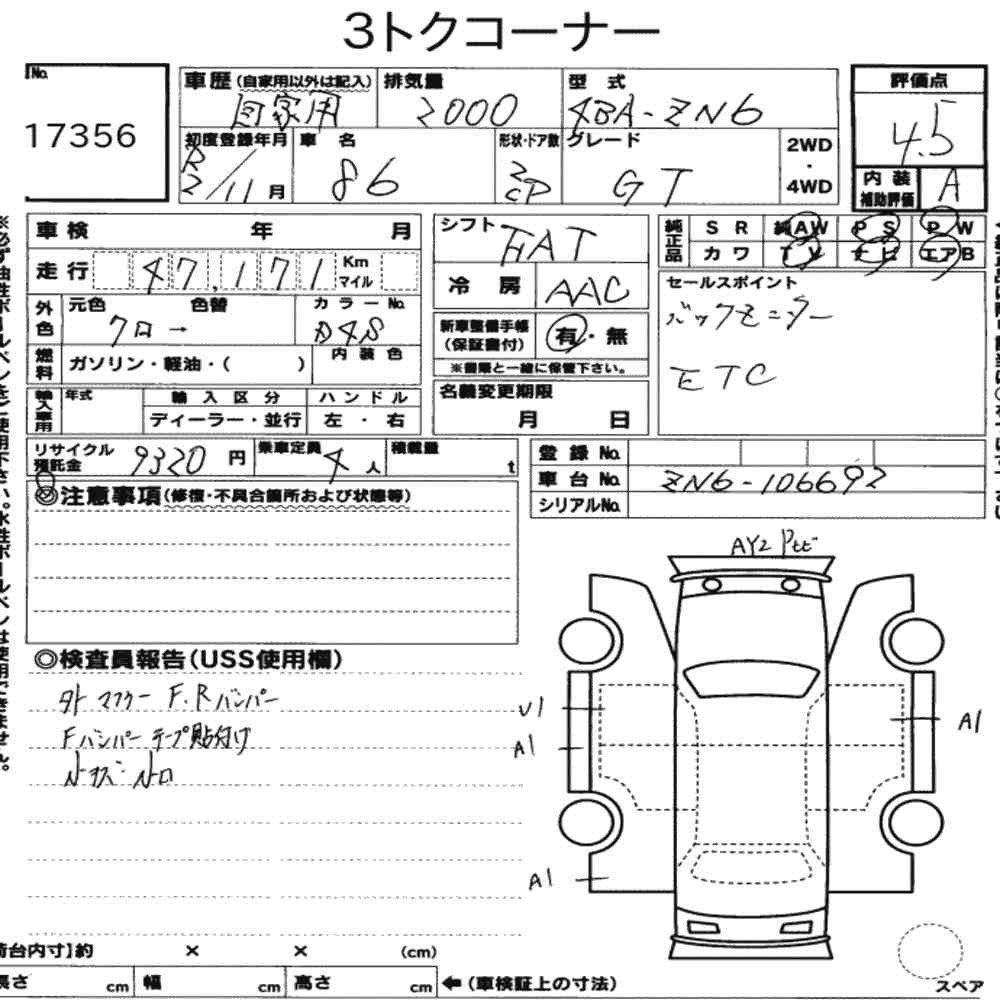 3トクコーナー
No.
17356
車歴(自家用以外は記入)
自家用
排気量
2000
型 式
4BA-ZN6
評価点
4.5
初度登録年月
R
2/11月
車 名
86
形状・ドア数
2
CP
グレード
GT
2WD
・
4WD
内 装
補助評価
A
車 検 年 月
走 行 47,171 Km
マイル
シフト
FAT
冷 房
AAC
純正品
S R 純AW P S P W
カワ TV ナビ エアB
セールスポイント
バックモニター
ETC
外色
元色 色替 カラーNo.
クロ→ D4S
燃料
ガソリン・軽油・( )
内 装 色
新車整備手帳
(保証書付)
有・無
※書類と一緒に保管下さい。
輸入車用
年式
輸 入 区 分
ハ ン ド ル
ディーラー・並行
左 ・ 右
名義変更期限
月 日
リサイクル
預託金
9320 円
乗車定員
4 人
積載量
t
登 録 No.
車 台 No. ZN6-106692
シリアルNo.
◎注意事項(修復・不具合箇所および状態等)
◎検査員報告(USS使用欄)
外 マフラー F.Rバンパー
Fバンパー テープ貼付け
AY2
U1
A1
A1
A1
荷台内寸】約 × × (cm)
長さ cm 幅 cm 高さ cm ←(車検証上の寸法)
スペア